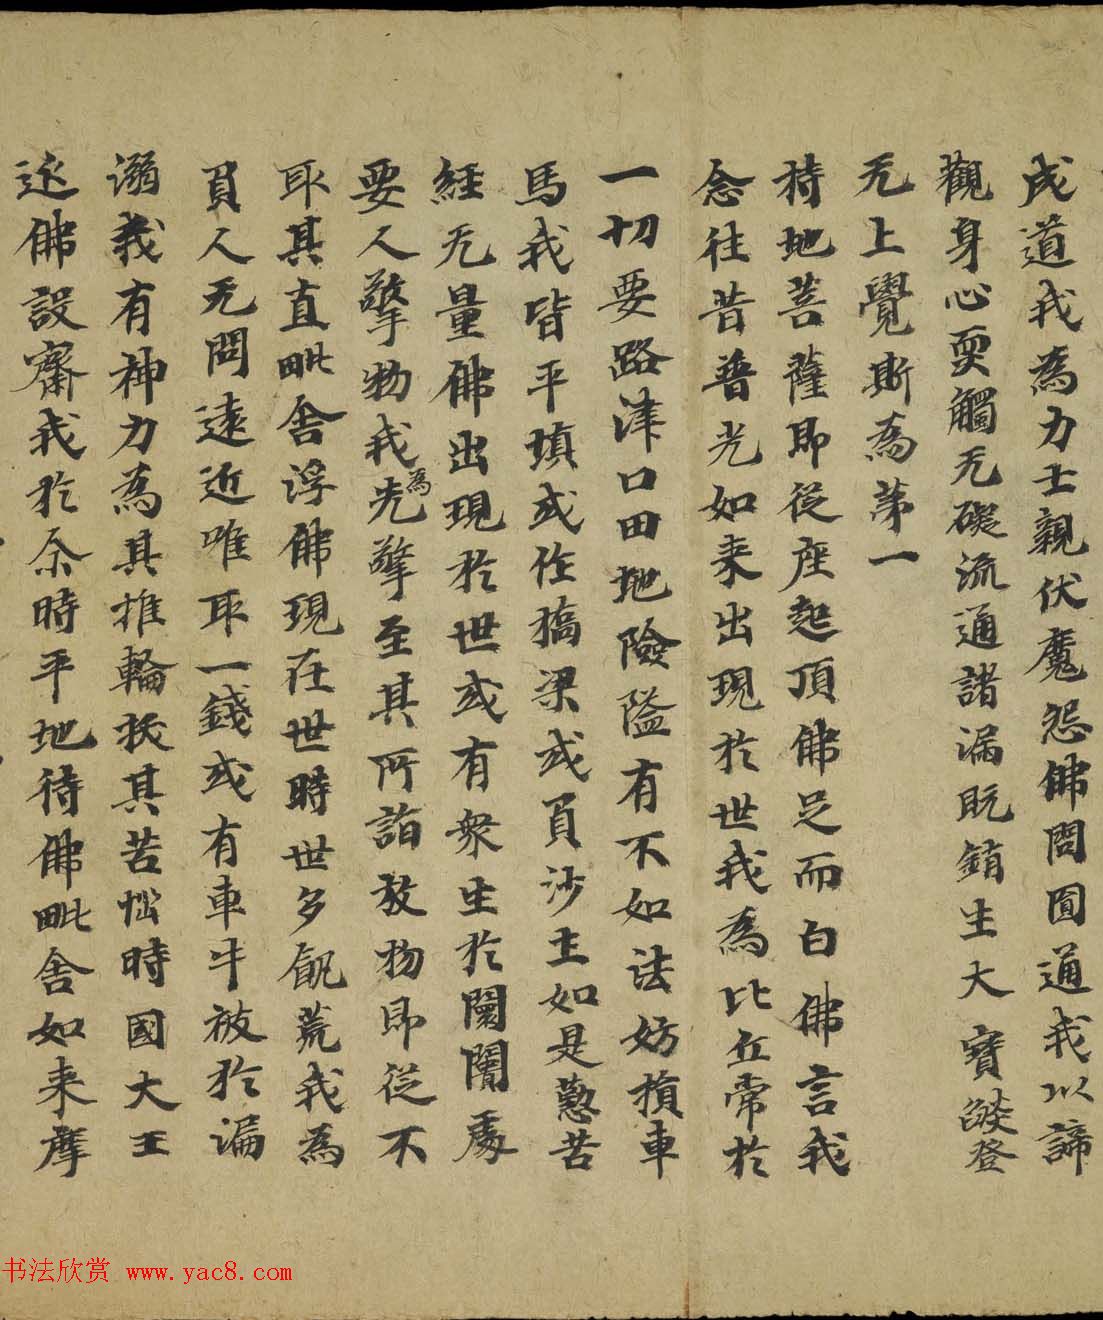 成道我為力士親伏魔怨佛問圓通我以諦
觀身心耎觸无礙流通諸漏既銷生大寶燄登
无上覺斯為第一
持地菩薩即從座起頂佛足而白佛言我
念往昔普光如来出現於世我為比丘常於
一切要路津口田地險隘有不如法妨損車
馬我皆平填或作橋梁或負沙土如是懃苦
経无量佛出現於世或有衆生於闤闠處
要人擎物我先為擎至其所詣放物即從不
取其直毗舍浮佛現在世時世多飢荒我為
負人无問遠近唯取一錢或有車牛被於漏
溺我有神力為其推輪拔其苦惱時國大王
延佛設齋我於尒時平地待佛毗舍如来摩
书法欣赏 www.yac8.com